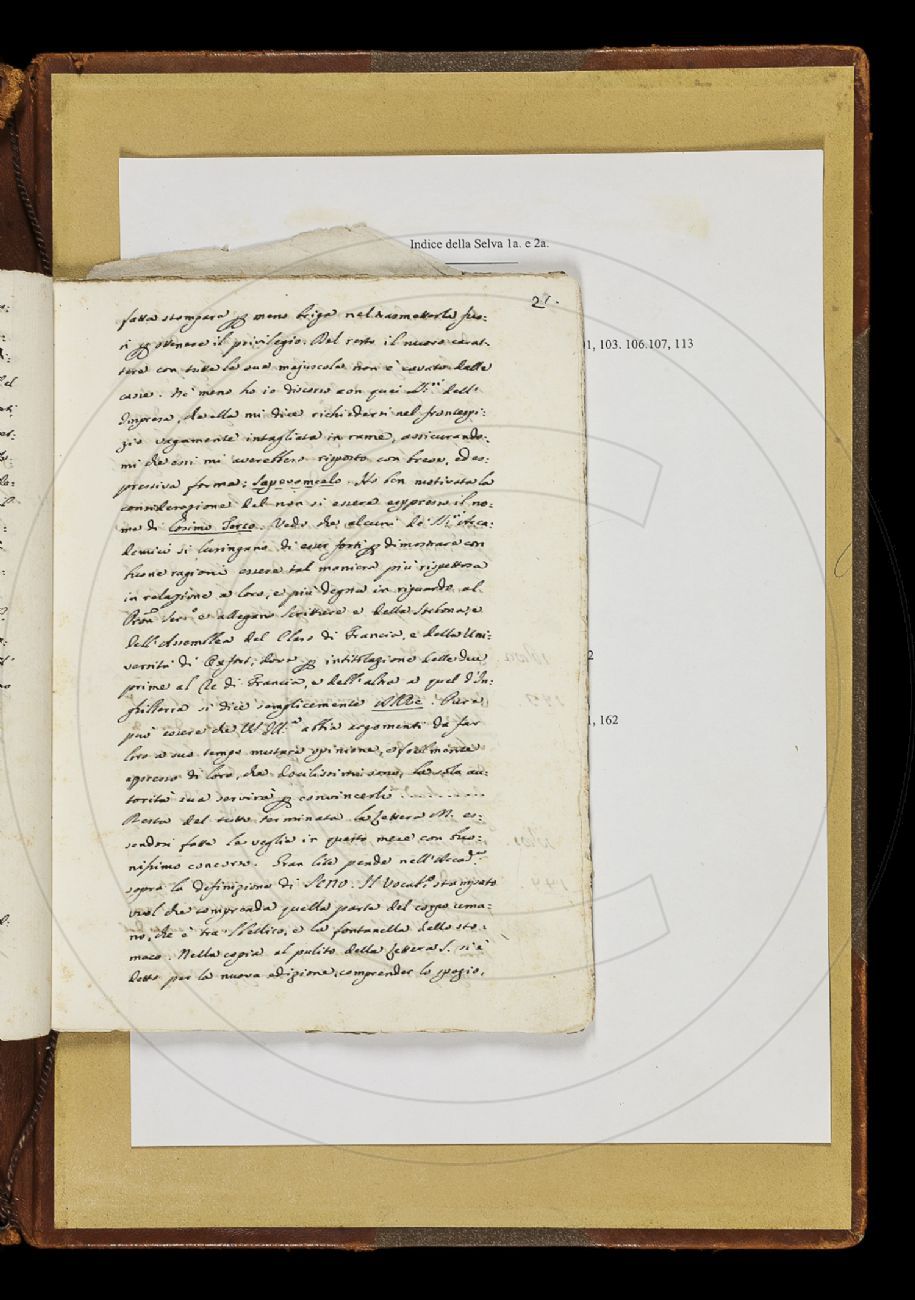 Indice della Selva 1a. e 2a.
1, 103. 106.107, 113
2
1, 162
27.
fatta stampare per meno briga nel trasmetterla fuo:
ri per ottenere il privilegio. Del resto il nuovo carat:
tere con tutte le sue majuscole non è cavato dalle
casse. Nè meno ho io discorso con quei SS.ri dell'
Impresa, che ella mi dice richiedersi nel frontespi:
zio vagamente intagliata in rame, assicurando:
mi che essi mi averebbero risposto con breve, ed es:
pressiva frase: Sapevamcelo. Ho ben motivata la
considerazione del non si essere espresso il no:
me di Cosimo Terzo. Vedo che alcuni de' SS.ri Acca:
demici si lusingano di esser forti per dimostrare con
buone ragioni essere tal maniera più rispettosa
in relazione a loro, e più degna in riguardo al
Pron. Ser.o e allegano scritture e della Sorbona, e
dell'Assemblea del Clero di Francia, e della Uni:
versità di Oxfort, dove per intitolazione delle due
prime al Re di Francia, e dell'altra a quel d'In:
ghilterra si dice semplicemente Al Re. Pure
può essere che V.S. Ill.ma abbia argomenti da far
loro a suo tempo mutare opinione, e facilmente
appresso di loro, che docilissimi sono, la sola au:
torità sua servirà per convincerli
Resta del tutto terminata la Lettera M. es:
sendosi fatta la veglia in questo mese con buo:
nissimo concorso. Gran lite pende nell'Accad.a
sopra la definizione di SENO. Il Vocab.o stampato
vuol che comprenda quella parte del corpo uma:
no, che è tra 'l bellico, e la fontanella dello sto:
maco. Nella copia al pulito della Lettera S. si è
detto per la nuova edizione, comprender lo spazio,